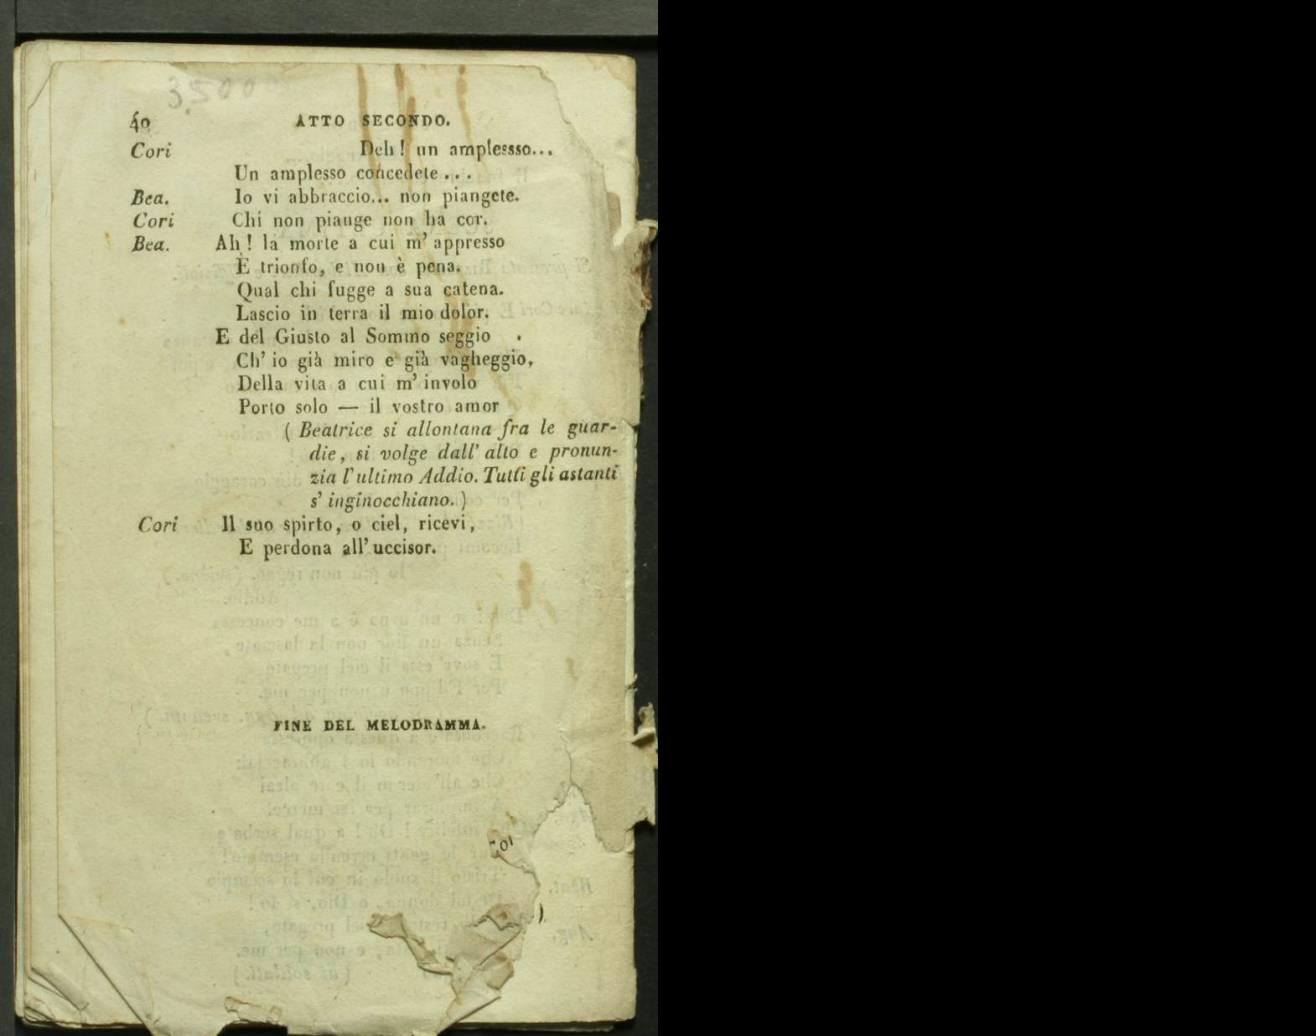 3.500
40 ATTO SECONDO.
Cori Deh! un amplessso...
Un amplesso concedete...
Bea. Io vi abbraccio... non piangete.
Cori Chi non piange non ha cor.
Bea. Ah! la morte a cui m' appresso
È trionfo, e non è pena.
Qual chi fugge a sua catena.
Lascio in terra il mio dolor.
E del Giusto al Sommo seggio
Ch' io già miro e già vagheggio,
Della vita a cui m' involo
Porto solo — il vostro amor
( Beatrice si allontana fra le guar-
die, si volge dall' alto e pronun-
zia l' ultimo Addio. Tutti gli astanti
s' inginocchiano. )
Cori Il suo spirto, o ciel, ricevi,
E perdona all' uccisor.
FINE DEL MELODRAMMA.